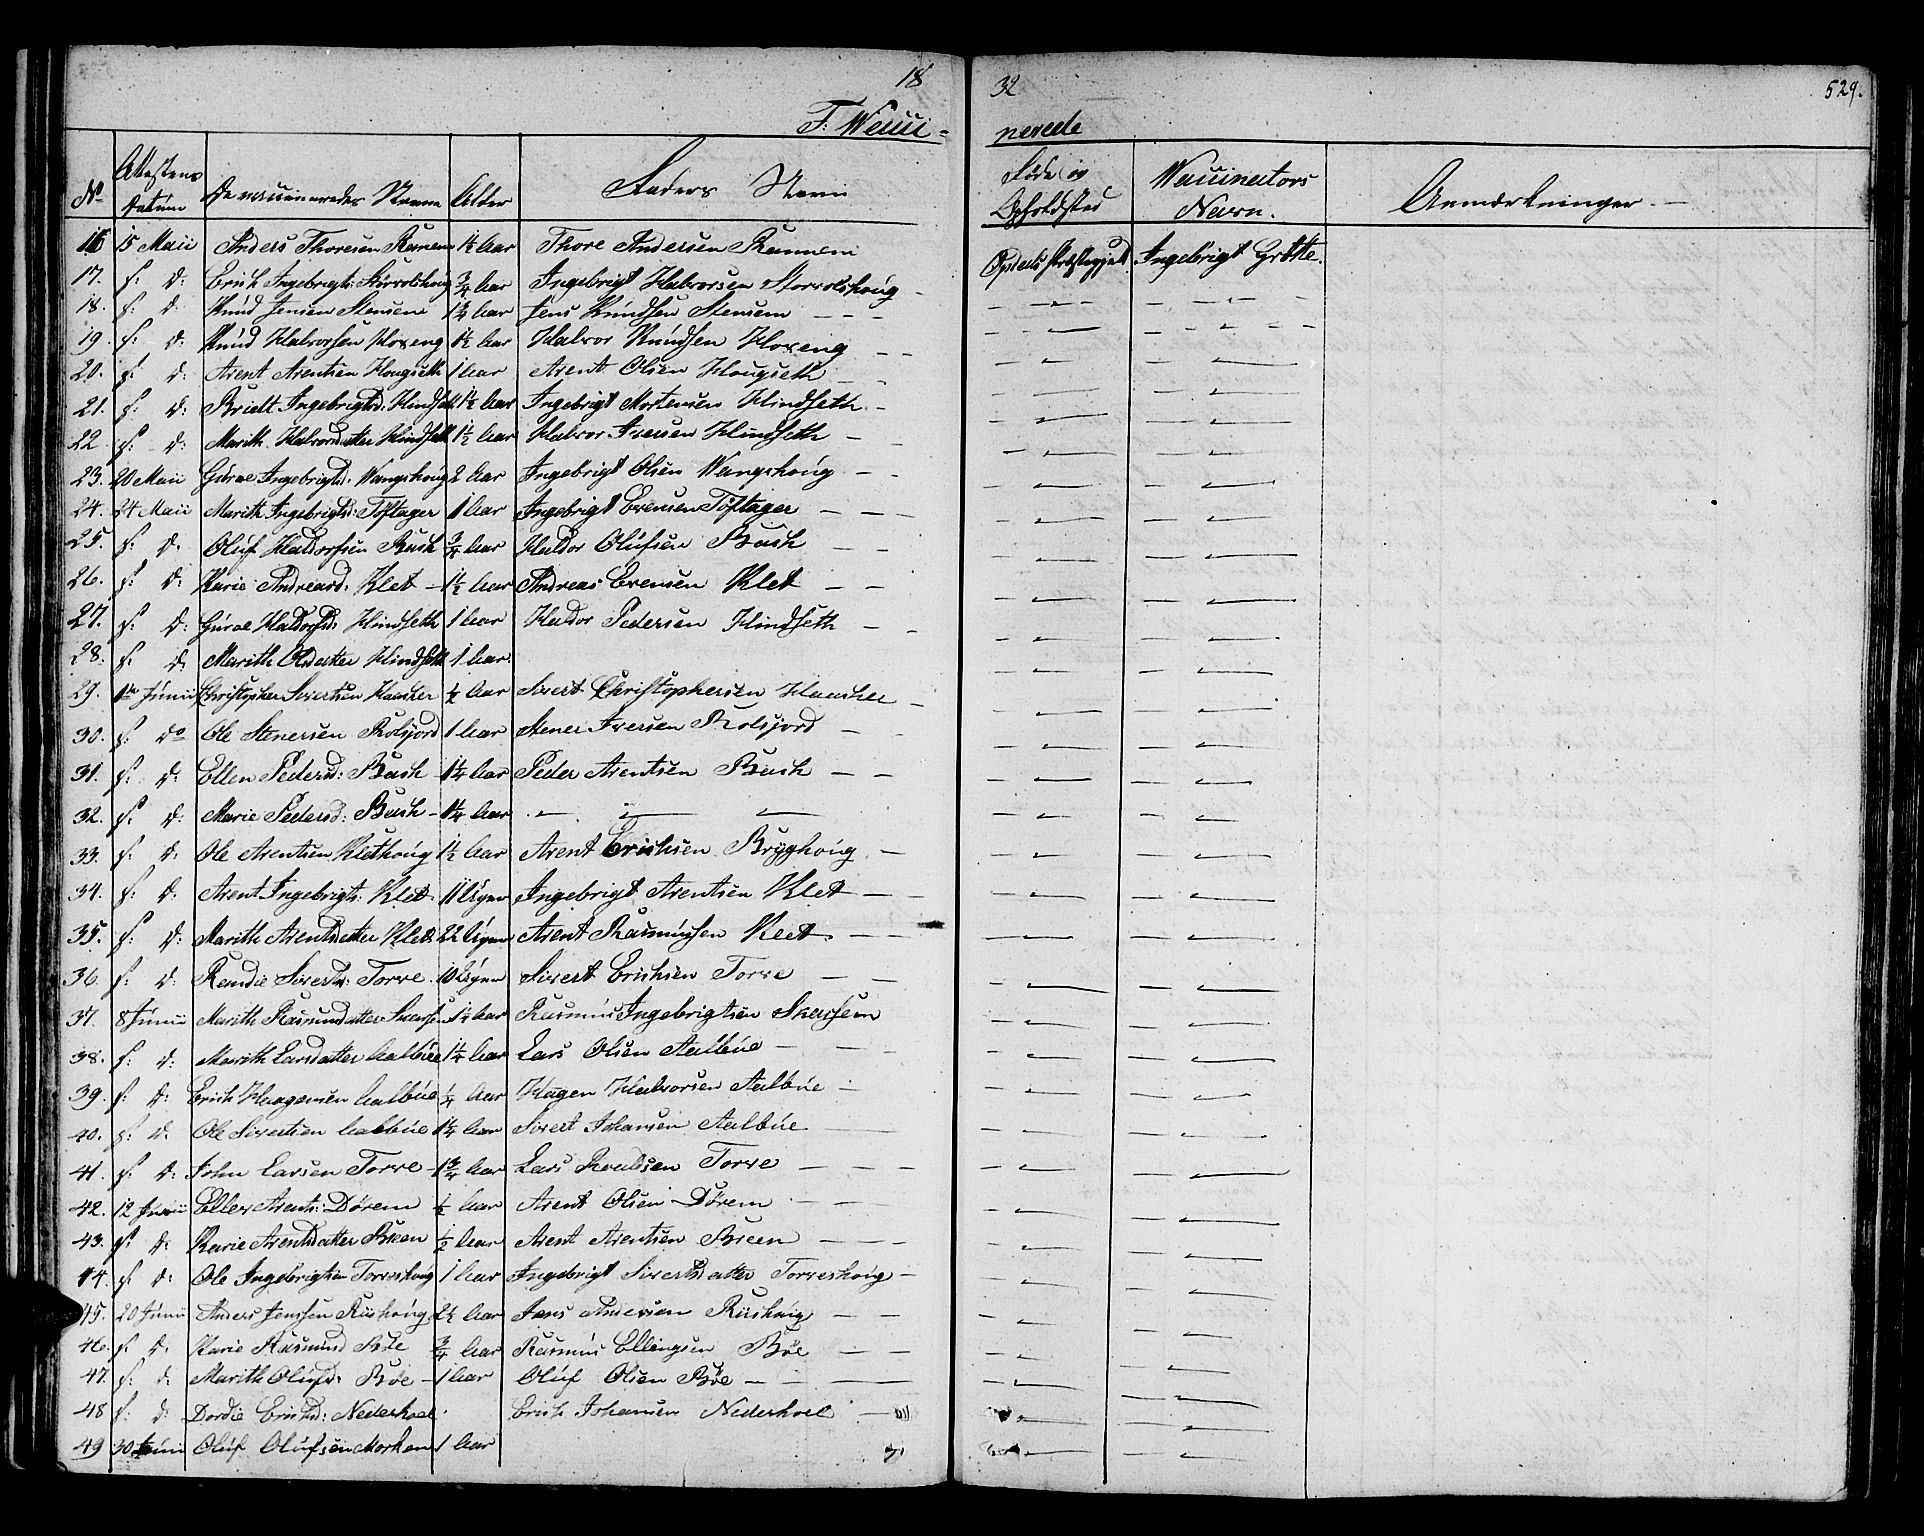 18 32 529.
F: Wacci= nerede
No Attestens Datum De vaccineredes Navne Alder Faders Navn Føde og Opholdsted Waccinators Navn. Anmærkninger.
16 15 Maii Anders Thoresen Ranem 1½ Aar Thore Andersen Rannem Opdals Præstegjeld Ingebrigt Grötte.
17. f: d: Erich Ingebrigts: Storvolshoug ¾ Aar Ingebrigt Halvorsen Storvolshoug
18. f: d: Knud Jensen Stensem 1¾ Aar Jens Knudsen Stensem
19. f: d: Knud Halvorsen Horseng 1½ Aar Halvor Knudsen Horseng
20. f: d: Arent Arentsen Hougseth 1 Aar Arent Olsen Hougseth
21. f: d: Brielt Ingebrigtsd: Hindseth 1½ Aar Ingebrigt Mortensen Hindseth
22 f: d: Marith Halvorsdatter Hindseth 1½ Aar Halvor Iversen Hindseth
23. 20 Maii Guroe Ingebrigtsd: Wangshoug 2 Aar Ingebrigt Olsen Wangshoug
24. 24 Maii Marith Ingebrigtsd: Toftager 1 Aar Ingebrigt Evensen Toftager
25. f: d: Oluf Haldorsen Bush ¾ Aar Haldor Olufsen Bush
26. f: d: Karie Andreasd: Klet 1½ Aar Andreas Evensen Klet
27. f: d: Guroe Haldorsd: Hindseth 1 Aar Haldor Pedersen Hindseth
28. f: d: Marith Olsdatter Hindseth 1 Aar.
29. 1ste Junii Christopher Sivertsen Haasker ½ Aar Sivert Christophersen Haasker
30. f: do Ole Stenersen Rolsjord 1 Aar Stener Iversen Rolsjord
31. f: d: Ellen Pedersd: Bush 1¼ Aar Peder Arentsen Bush
32. f: d: Marie Pedersd: Bush 1¼ Aar
33. f: d: Ole Arentsen Klethoug 1½ Aar Arent Erichsen Bryghoug
34. f: d: Arent Ingebrigts: Klet 11 Uger Ingebrigt Arentsen Klet
35. f: d: Marith Arentsdatter Klet 22 Uger Arent Rasmussen Klet
36. f: d: Randie Sivertsd: Torve 10 Uger Sivert Erichsen Torve
37. 8 Junii Marith Rasmusdatter Skarsem 1½ Aar Rasmus Ingebrigtsen Skarsem
38. f: d: Marith Larsdatter Aalbue 1¼ Aar Lars Olsen Aalbue
39. f: d: Erich Haagensen Aalbue ¼ Aar Hagen Halvorsen Aalbue
40. f: d: Ole Sivertsen Aalbue 1¼ Aar Sivert Johansen Aalbue
41. f: d: John Larsen Torve 1¾ Aar Lars Poulsen Torve
42. 12 Junii Ellev Arents: Dørem ½ Aar Arent Olsen Dørem
43. f: d: Karie Arentsdatter Breen ½ Aar Arent Arentsen Breen
44. f: d: Ole Ingebrigtsen Torveshoug 1 Aar Ingebrigt Sivertsdatter Torveshoug
45. 20 Junii Anders Jenssen Riishoug 2½ Aar Jens Andersen Riishoug
46. f: d: Karie Rasmusd Bøe ¾ Aar Rasmus Ellingsen Bøe
47. f: d: Marith Olufsd: Bøe 1 Aar Oluf Olsen Bøe
48 f: d: Dordie Erichsd: Nederhoel Erich Johansen Nederhoel
49 30 Junii Oluf Olufsen Morken 1 Aar